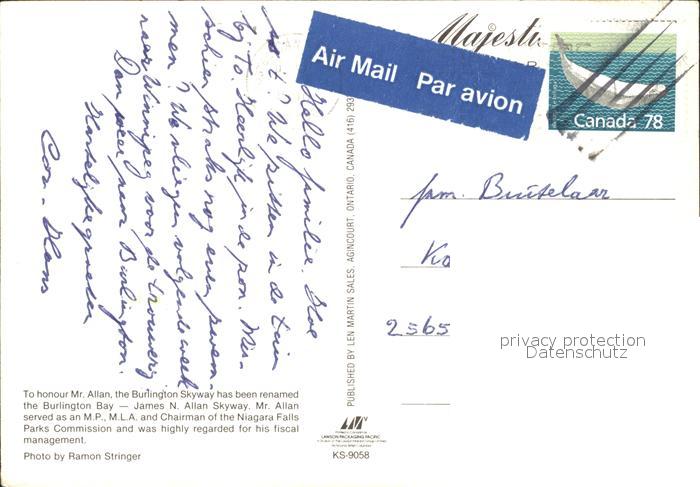 Hallo familie. Hoe
is 't? We zitten in de tuin
by To. Heerlijk in de zon. Mis-
schien straks nog even zwem-
men? We vliegen volgende week
naar Winnipeg voor de trouwerij.
Dan weer naar Burlington.
Hartelijke groeten
Cor - Hans
To honour Mr. Allan, the Burlington Skyway has been renamed
the Burlington Bay — James N. Allan Skyway. Mr. Allan
served as an M.P., M.L.A. and Chairman of the Niagara Falls
Parks Commission and was highly regarded for his fiscal
management.
Photo by Ramon Stringer
PUBLISHED BY LEN MARTIN SALES, AGINCOURT, ONTARIO, CANADA (416) 293
LAWSON PACKAGING PACIFIC
KS-9058
Majesti
Air Mail Par avion
Canada 78
fam. Buitelaar
Ko
2565
privacy protection
Datenschutz